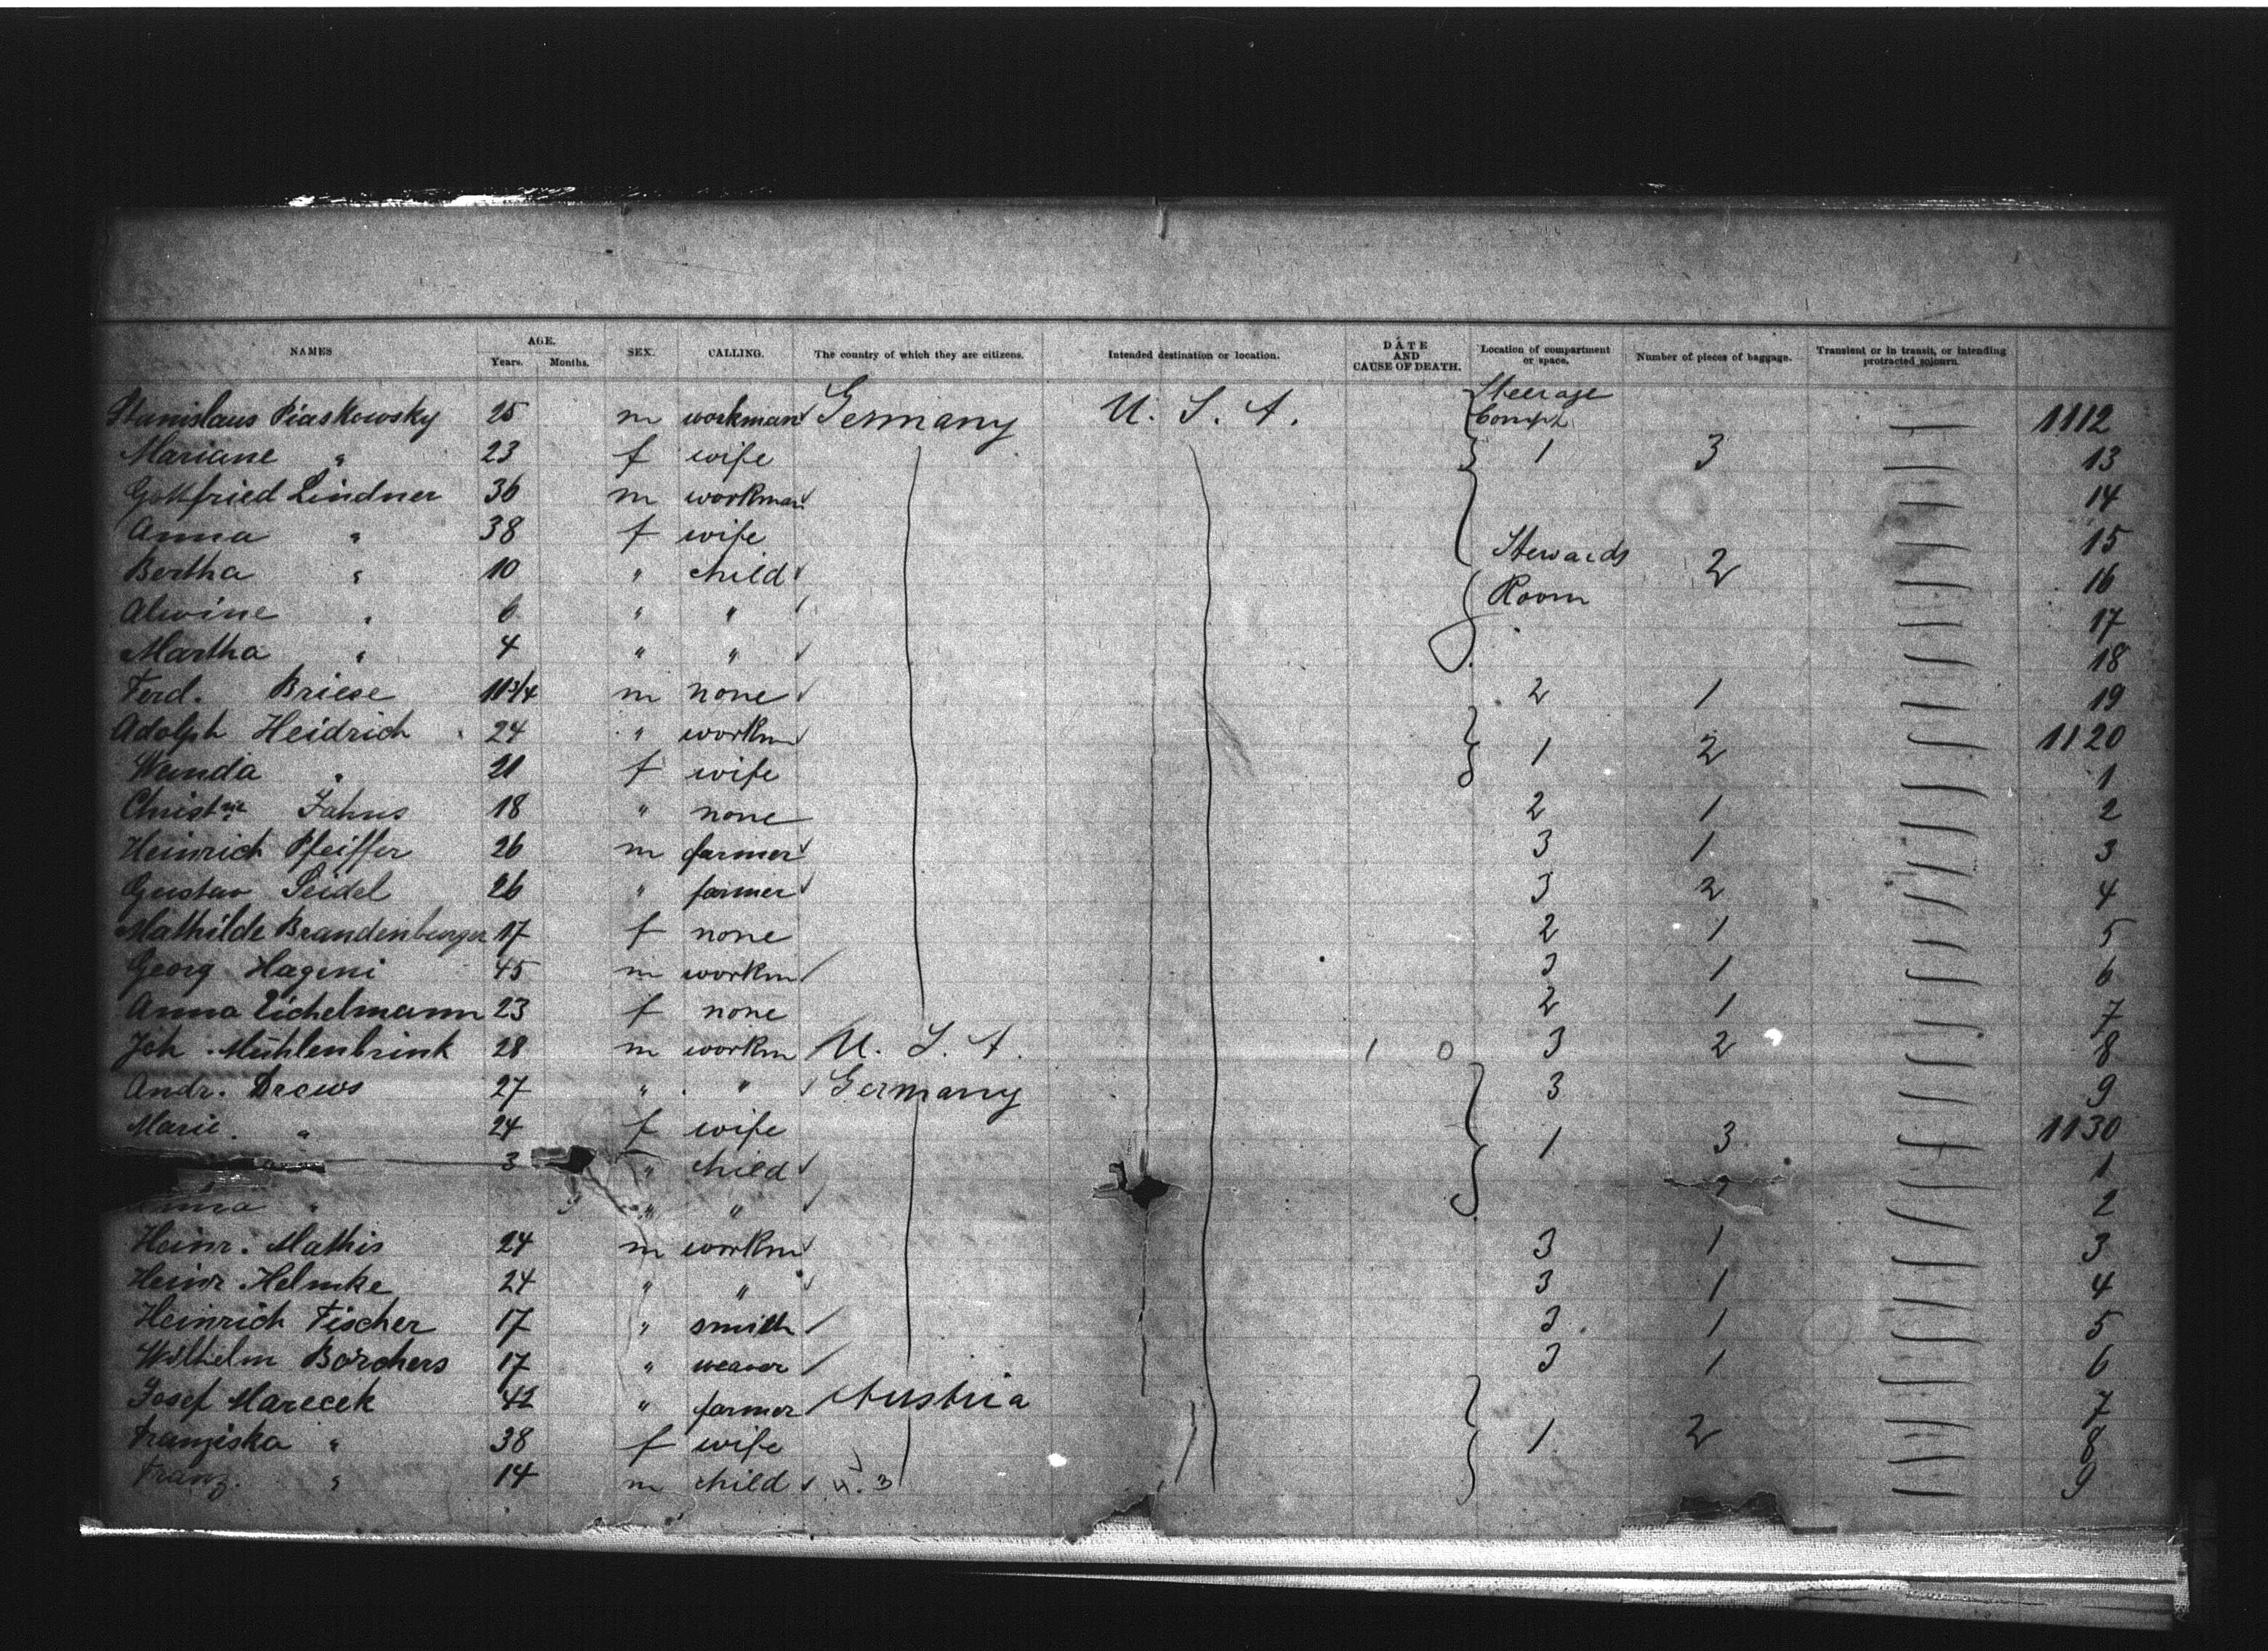 NAMES AGE. Years. Months. SEX. CALLING. The country of which they are citizens. Intended destination or location. DATE AND CAUSE OF DEATH. Location of compartment or space. Number of pieces of baggage. Transient or in transit, or intending protracted sojourn.
Stanislaus Piaskowsky 25 m workman Germany U. S. A. Steerage Compt 1112
Mariane " 23 f wife 1 3 13
Gottfried Lindner 36 m workman 14
Anna " 38 f wife Stewards 15
Bertha " 10 " child Room 2 16
Alwine " 6 " " 17
Martha " 4 " " 18
Ferd. Briese 11 3/4 m none 2 1 19
Adolph Heidrich 24 " workm 1120
Wanda " 21 f wife 1 2 1
Christne Jahns 18 " none 2 1 2
Heinrich Pfeiffer 26 m farmer 3 1 3
Gustav Seidel 26 " farmer 3 2 4
Mathilde Brandenburger 17 f none 2 1 5
Georg Hageni 45 m workm 3 1 6
Anna Eichelmann 23 f none 2 1 7
Joh. Mühlenbrink 28 m workm U. S. A. 1 0 3 2 8
Andr. Drews 27 " " Germany 3 9
Marie " 24 f wife 1 3 1130
3 " child 1
" " " 2
Heinr. Mathis 24 m workm 3 1 3
Heinr Helmke 24 " " 3 1 4
Heinrich Fischer 17 " smith 3 1 5
Wilhelm Borchers 17 " weaver 3 1 6
Josef Marecek 42 " farmer Austria 7
Franziska " 38 f wife 1 2 8
Franz. " 14 m child 9